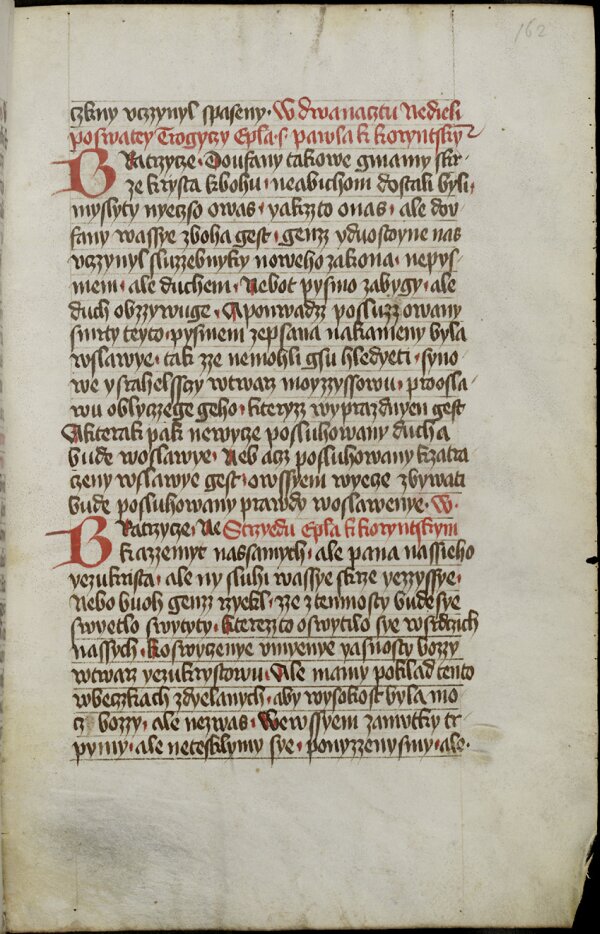 162
czkny vczynyl spaseny · W dwanacztu Nedieli
poswatey Trogyczy Epla · s · pawla k koryntskẏ
BRatrzyeze · Doufany takowe gmamy skr-
ze krysta kbohu · neabichom dostali byli,
myslyty nyeczso owas · yakzto onas · ale dov-
fany wassye zboha gest · genz vduostoyne nas
vczynyl sluzzebnyky noweho zakona · nepys-
mem · ale duchem · Nebot pysmo zabygy · ale
duch obzzywuge · Aponwadz posluzzowany
smrty teyto · pysmem zepsana nakameny byla
wslawye · tak zze nemohli gsu hledyeti · syno-
we ysrahelssczy wtwarz moyzzyssowu · prooosla-
wu oblyczege geho · kteryzz wyprazdnyen gest
Akterak pak newyeze posluhowany ducha
bude woslawye · Neb acz posluhowany kzatra
czeny wslawye gest · owssyem wyecze zbywati
bude posluhowany prawdy woslawenye · W ·
BRatrzyeze · Ne Strzyedu Epla k koryntskym
kazzemyt nassamych · ale pana nassieho
yezukrista · ale ny sluhi wassye skrze yezzyssye ·
Nebo buoh genz rzyekl · zze ztemnosty bude sye
swyetlo swytyty · kterezto oswytilo sye wsrdczich
nassych · koswyczenye vmyenye yasnosty bozzy
wtwarz yezukrystowu · Ale mamy poklad tento
wbeczkach zdyelanych · aby wysokost byla mo-
cz bozzy · ale nezwas · Wewssyem zamutky tr-
pymy · ale netesklymy sye · ponyzzenysmy · ale ·